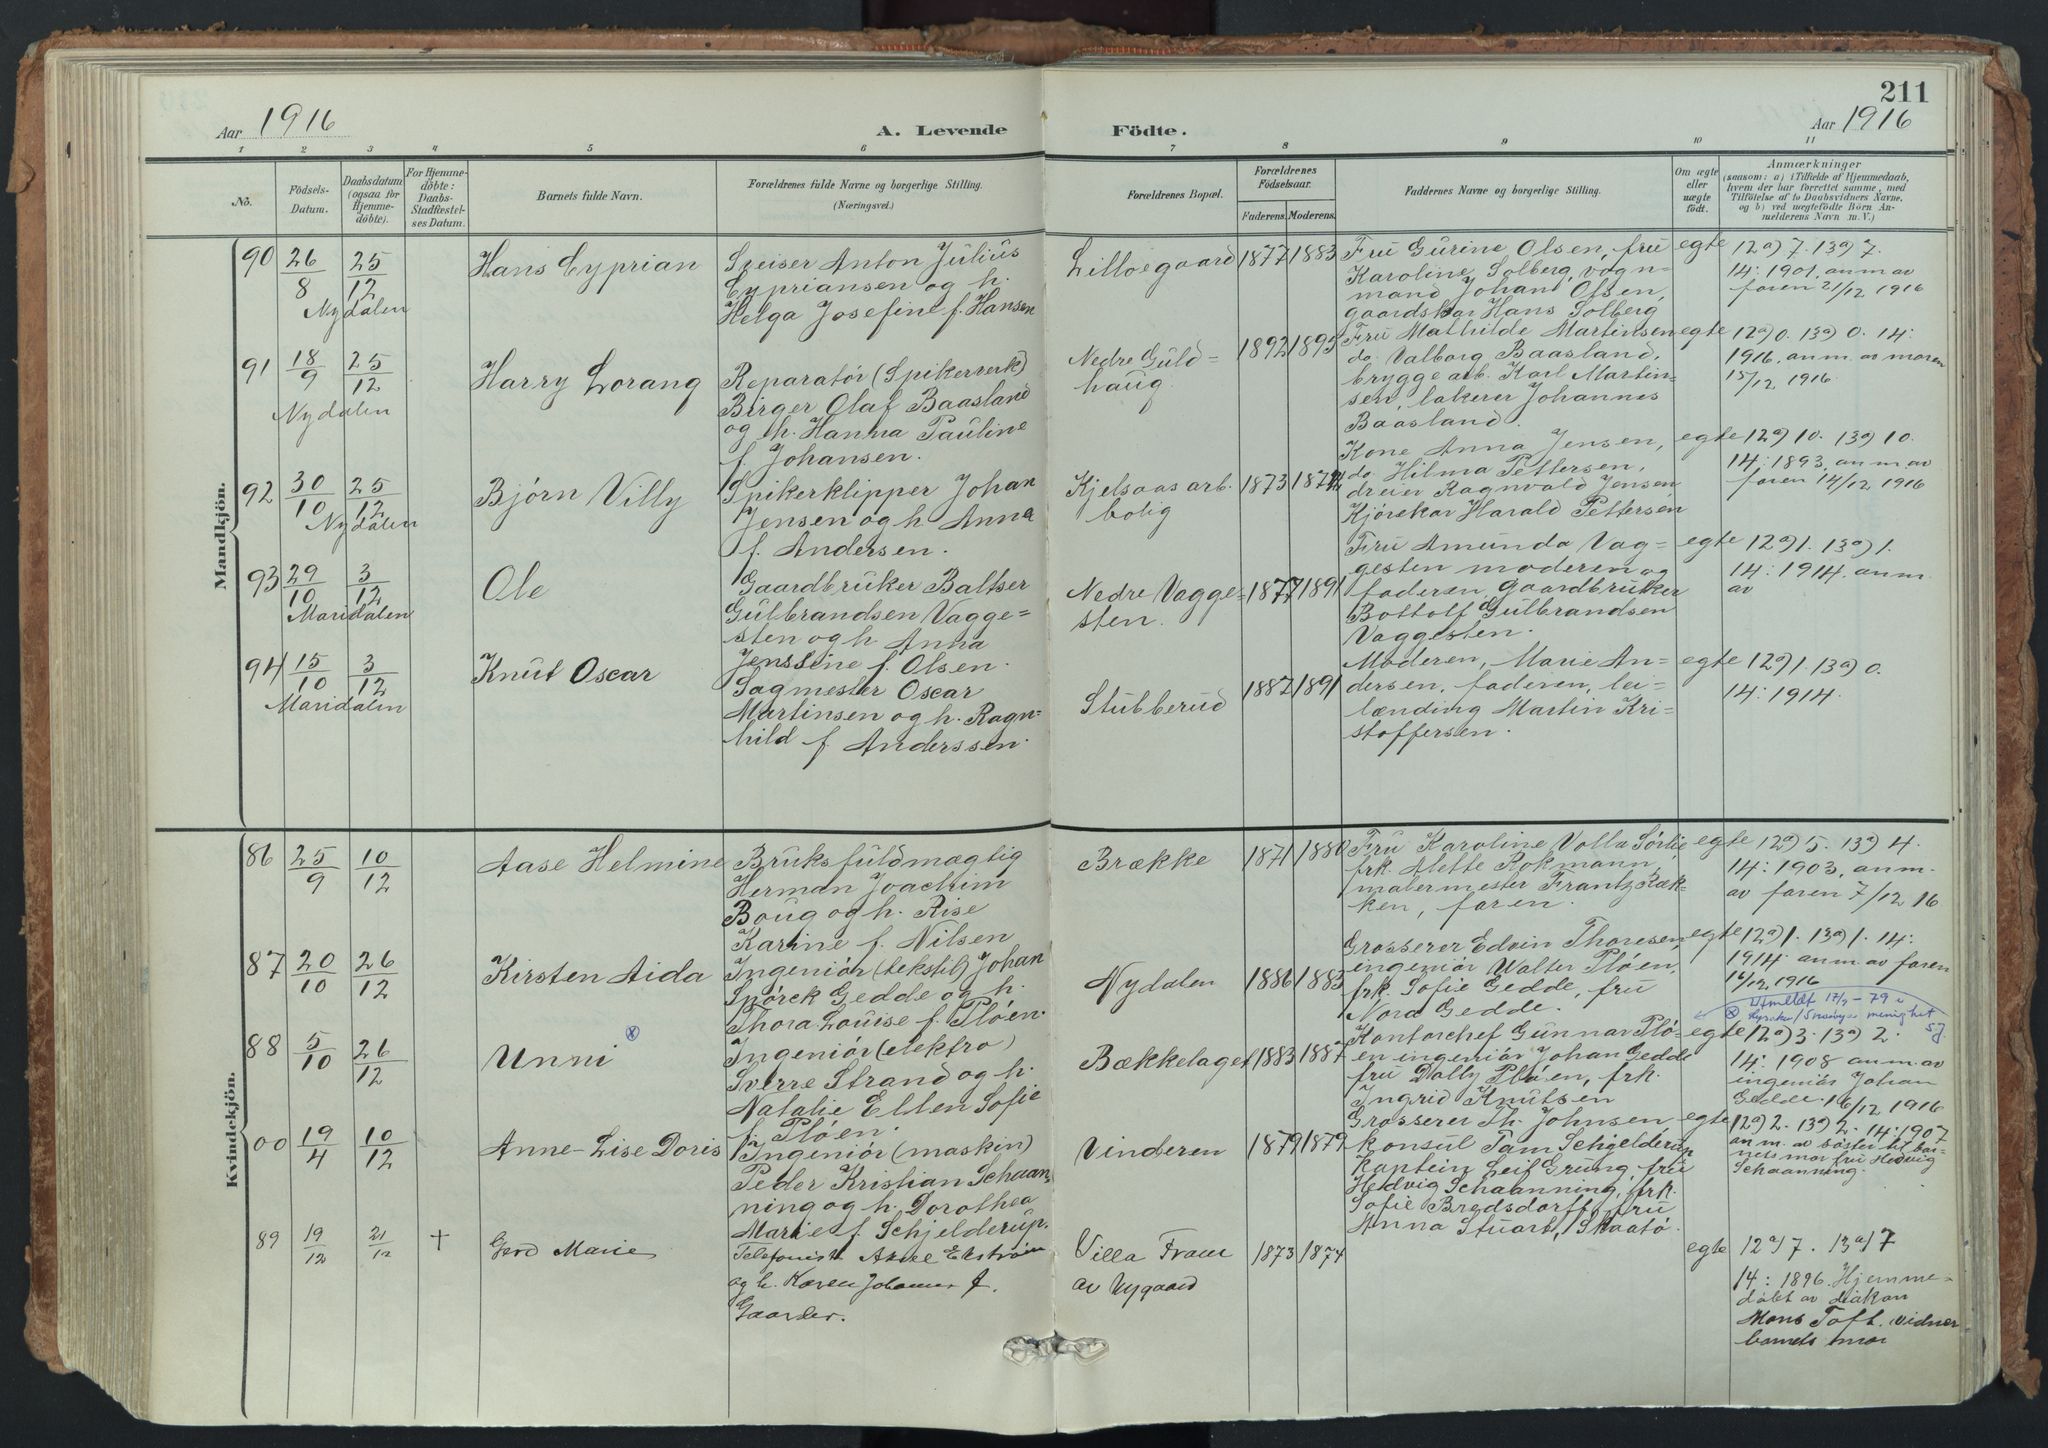 211
Aar 1916 A. Levende Födte. Aar 1916
1 2 3 4 5 6 7 8 9 10 11
No.
Födsels-Datum.
Daabsdatum (ogsaa for Hjemmedöbte).
For Hjemmedöbte: Daabs-Stadfæstelses Datum.
Barnets fulde Navn.
Forældrenes fulde Navne og borgerlige Stilling.
(Næringsvei.)
Forældrenes Bopæl.
Forældrenes Födselsaar.
Faderens. Moderens.
Faddernes Navne og borgerlige Stilling.
Om ægte eller uægte födt.
Anmærkninger
(saasom: a) i Tilfælde af Hjemmedaab,
hvem der har forrettet samme, med
Tilföielse af to Daabsvidners Navne,
og b) ved uægtefödte Börn Anmelderens Navn m. V.)
Mandkjön.
90 26/8 25/12
Nydalen
Hans Cyprian
Speiser Anton Julius
Cypriansen og h.
Helga Josefine f. Hansen
Lilloegaard
1877 1883
Fru Gurine Olsen, fru
Karoline Solberg, vogn-
mand Johan Olsen,
gaardskar Hans Solberg
egte
12a) 7. 13a) 7.
14: 1901, anm av
faren 21/12 1916
91 18/9 25/12
Nydalen
Harry Lorang
Reparatør (Spikerverk)
Birger Olaf Baasland
og h. Hanna Pauline
f. Johansen.
Nedre Guld-
haug.
1892 1895
Fru Mathilde Martinsen
do. Valborg Baasland,
bryggearb. Karl Martin-
sen, lakerer Johannes
Baasland.
egte
12a) 0. 13a) 0. 14:
1916, anm. av moren
15/12 1916
92 30/10 25/12
Nydalen
Bjørn Villy
Spikerklipper Johan
Jensen og h. Anna
f. Andersen.
Kjelsaas arb.
bolig
1873
Kone Anna Jensen,
do. Hilma Pettersen,
dreier Ragnvald Jensen
Kjørekar Harald Pettersen
egte
12a) 10. 13a) 10.
14: 1893, anm. av
faren 14/12 1916
93 29/10 3/12
Maridalen
Ole
Gaardbruker Baltser
Gulbrandsen Vagge-
sten og h. Anna
Jensine f. Olsen.
Nedre Vagge-
sten.
1877 1891
Fru Amunda Vag-
gesten moderen og
faderen, gaardbruker
Bottolf Gulbrandsen
Vaggesten.
egte
12a) 1. 13a) 1.
14: 1914. anm.
av
94 15/10 3/12
Maridalen
Knut Oscar
Sagmester Oscar
Martinsen og h. Ragn-
hild f. Anderssen.
Stubberud
1887 1891
Moderen, Marie An-
dersen, faderen, lei-
lænding Martin Kri-
stoffersen.
egte
12a) 1. 13a) 0.
14: 1914.
Kvindekjön.
86 25/9 10/12
Aase Helmine
Bruksfuldmægtig
Herman Joachim
Boug og h. Rise
Karine f. Nilsen
Brække
1871 1880
Fru Karoline Volla Sørlie
frk. Alette Rokmann,
malermester Frantz Ræk-
ken, faren.
egte
12a) 5. 13a) 4.
14: 1903, anm.
av faren 7/12 16
87 20/10 26/12
Kirsten Aida
Ingeniør (tekstil) Johan
Spörck Gedde og h.
Thora Louise f. Pløen.
Nydalen
1886 1883
Grosserer Edvin Thoresen
ingeniør Walter Pløen,
frk. Sofie Gedde, fru
Nora Gedde.
egte
12a) 1. 13a) 1. 14:
1914 anm. av faren
16/12 1916
88 5/10 26/12
Unni ⊗
Ingeniør (elektro)
Sverre Strand og h.
Natalie Ellen Sofie
f. Pløen.
Bækkelaget
1883 1887
Kontorchef Gunnar Plø-
en ingeniør Johan Gedde
fru Dolly Pløen, frk.
Ingrid Knutsen
egte
⊗ Utmeldt 17/9-79 i
menighet
12a) 3. 13a) 2.
14: 1908 anm. av
ingeniør Johan
Gedde 16/12 1916
00 19/4 10/12
Anne-Lise Doris
Ingeniør (maskin)
Peder Kristian Schaan-
ning og h. Dorothea
Marie f. Schjelderup.
Vinderen
1879 1879
Grosserer Th. Johnsen
konsul Tam Schjelderup
kaptein Leif Grung, fru
Hedvig Schaanning, frk.
Sofie Bredsdorff, fru
Anna Stuart, Skaatø
egte
12a) 2. 13a) 2. 14: 1907
anm. av søster til bar-
nets mor fru Hedvig
Schaanning.
89 19/12 21/12 +
Gerd Marie
Telefonist Axel Ekstrøm
og h. Karen Johanne f.
Gaarder.
Villa Fram
av Nygaard
1873 1874
egte
12a) 7. 13a) 7
14: 1896. Hjemme-
døbt av diakon
Mons Toft. vidner
barnets mor